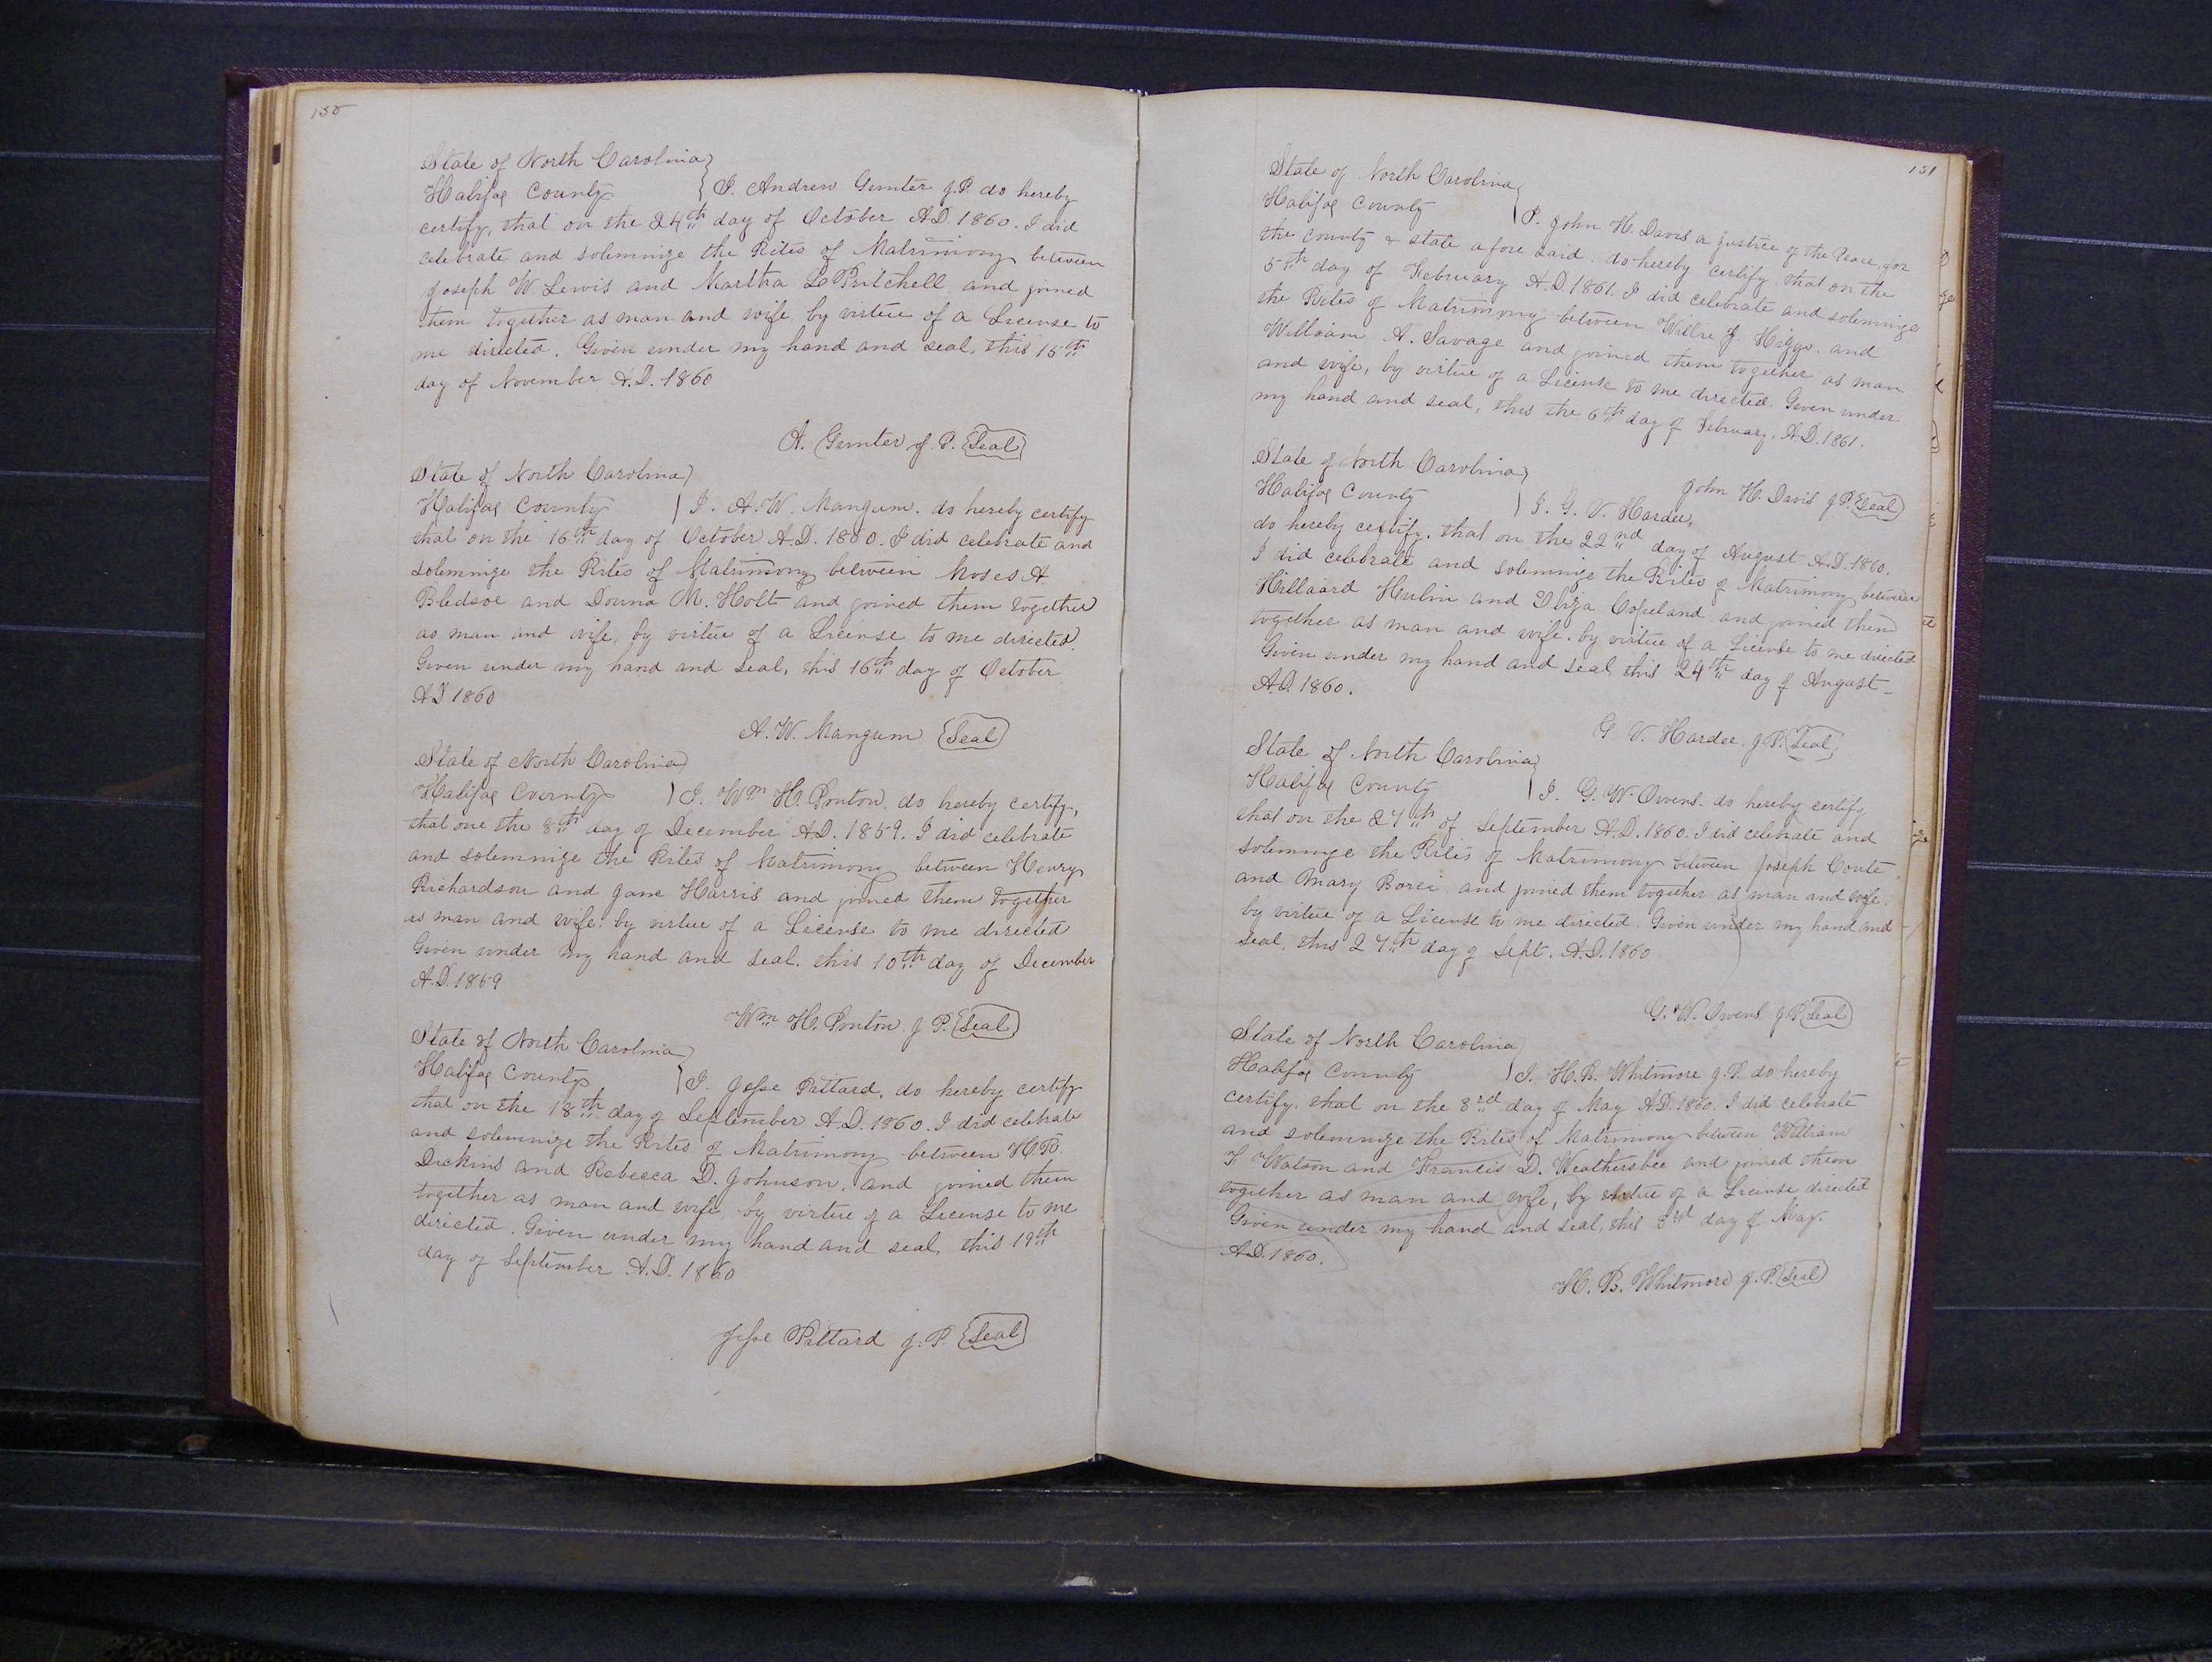 150
State of North Carolina
Halifax County } I. Andrew Gunter J.P. do hereby
certify, that on the 24th day of October A.D. 1860. I did
celebrate and solemnize the Rites of Matrimony between
Joseph W. Lewis and Martha L Pritchell and joined
them together as man and wife by virtue of a License to
me directed. Given under my hand and seal, this 15th
day of November A.D. 1860
A. Gunter J.P. Seal
State of North Carolina
Halifax County } I. A.W. Mangum. do hereby certify
that on the 16th day of October A.D. 1860. I did celebrate and
solemnize the Rites of Matrimony between Moses A
Bledsoe and M. Holt and joined them together
as man and wife, by virtue of a License to me directed.
Given under my hand and seal, this 16th day of October
A.D 1860
A.W. Mangum Seal
State of North Carolina
Halifax County } I. Wm H. Ponton, do hereby certify,
that one the 8th day of December A.D. 1859. I did celebrate
and solemnize the Rites of Matrimony between Henry
Richardson and Jane Harris and joined them together
as man and wife. by virtue of a License to me directed
Given under my hand and seal. this 10th day of December
A.D. 1859
Wm H. Ponton J P. Seal
State of North Carolina
Halifax County } I. Jesse Pittard, do hereby certify
that on the 18th day of September A.D. 1860. I did celebrate
and solemnize the Rites of Matrimony between H.B.
Dickins and Rebecca D. Johnson, and joined them
together as man and wife, by virtue of a License to me
directed. Given under my hand and seal, this 19th
day of September A.D. 1860
Jesse Pittard J.P. Seal
151
State of North Carolina
Halifax County } I. John H. Davis a justice of the Peace, for
the county & state afore said, do hereby certify that on the
5th day of February A.D. 1861. I did celebrate and solemnize
the Rites of Matrimony between Willie J. Higgs. and
William A. Savage and joined them together as man
and wife, by virtue of a License to me directed. Given under
my hand and seal, this the 6th day of February, A.D. 1861.
John H. Davis J P. Seal
State of North Carolina
Halifax County } I. G. V. Hardee,
do hereby certify, that on the 22nd day of August A.D. 1860.
I did celebrate and solemnize the Rites of Matrimony between
Hillaard and Eliza Copeland and joined them
together as man and wife. by virtue of a License to me directed
Given under my hand and seal this 24th day of August
A.D. 1860.
G. V. Hardee. J P. Seal
State of North Carolina
Halifax County } I. G. W. Owens. do hereby certify
that on the 27th of September A.D. 1860. I did celebrate and
solemnize the Rites of Matrimony between Joseph
and Mary and joined them together as man and wife.
by virtue of a License to me directed. Given under my hand and
seal, this 27th day of Sept. A.D. 1860
G. W. Owens J.P. Seal
State of North Carolina
Halifax County } I. H.B. Whitmore J.P. do hereby
certify. that on the 3rd day of May A.D. 1860. I did celebrate
and solemnize the Rites of Matrimony between William
F Watson and Francis D. Weathersbee and joined them
together as man and wife, by virtue of a License directed
Given under my hand and seal, this 3rd day of May.
A.D. 1860.
H. B. Whitmore J.P. Seal